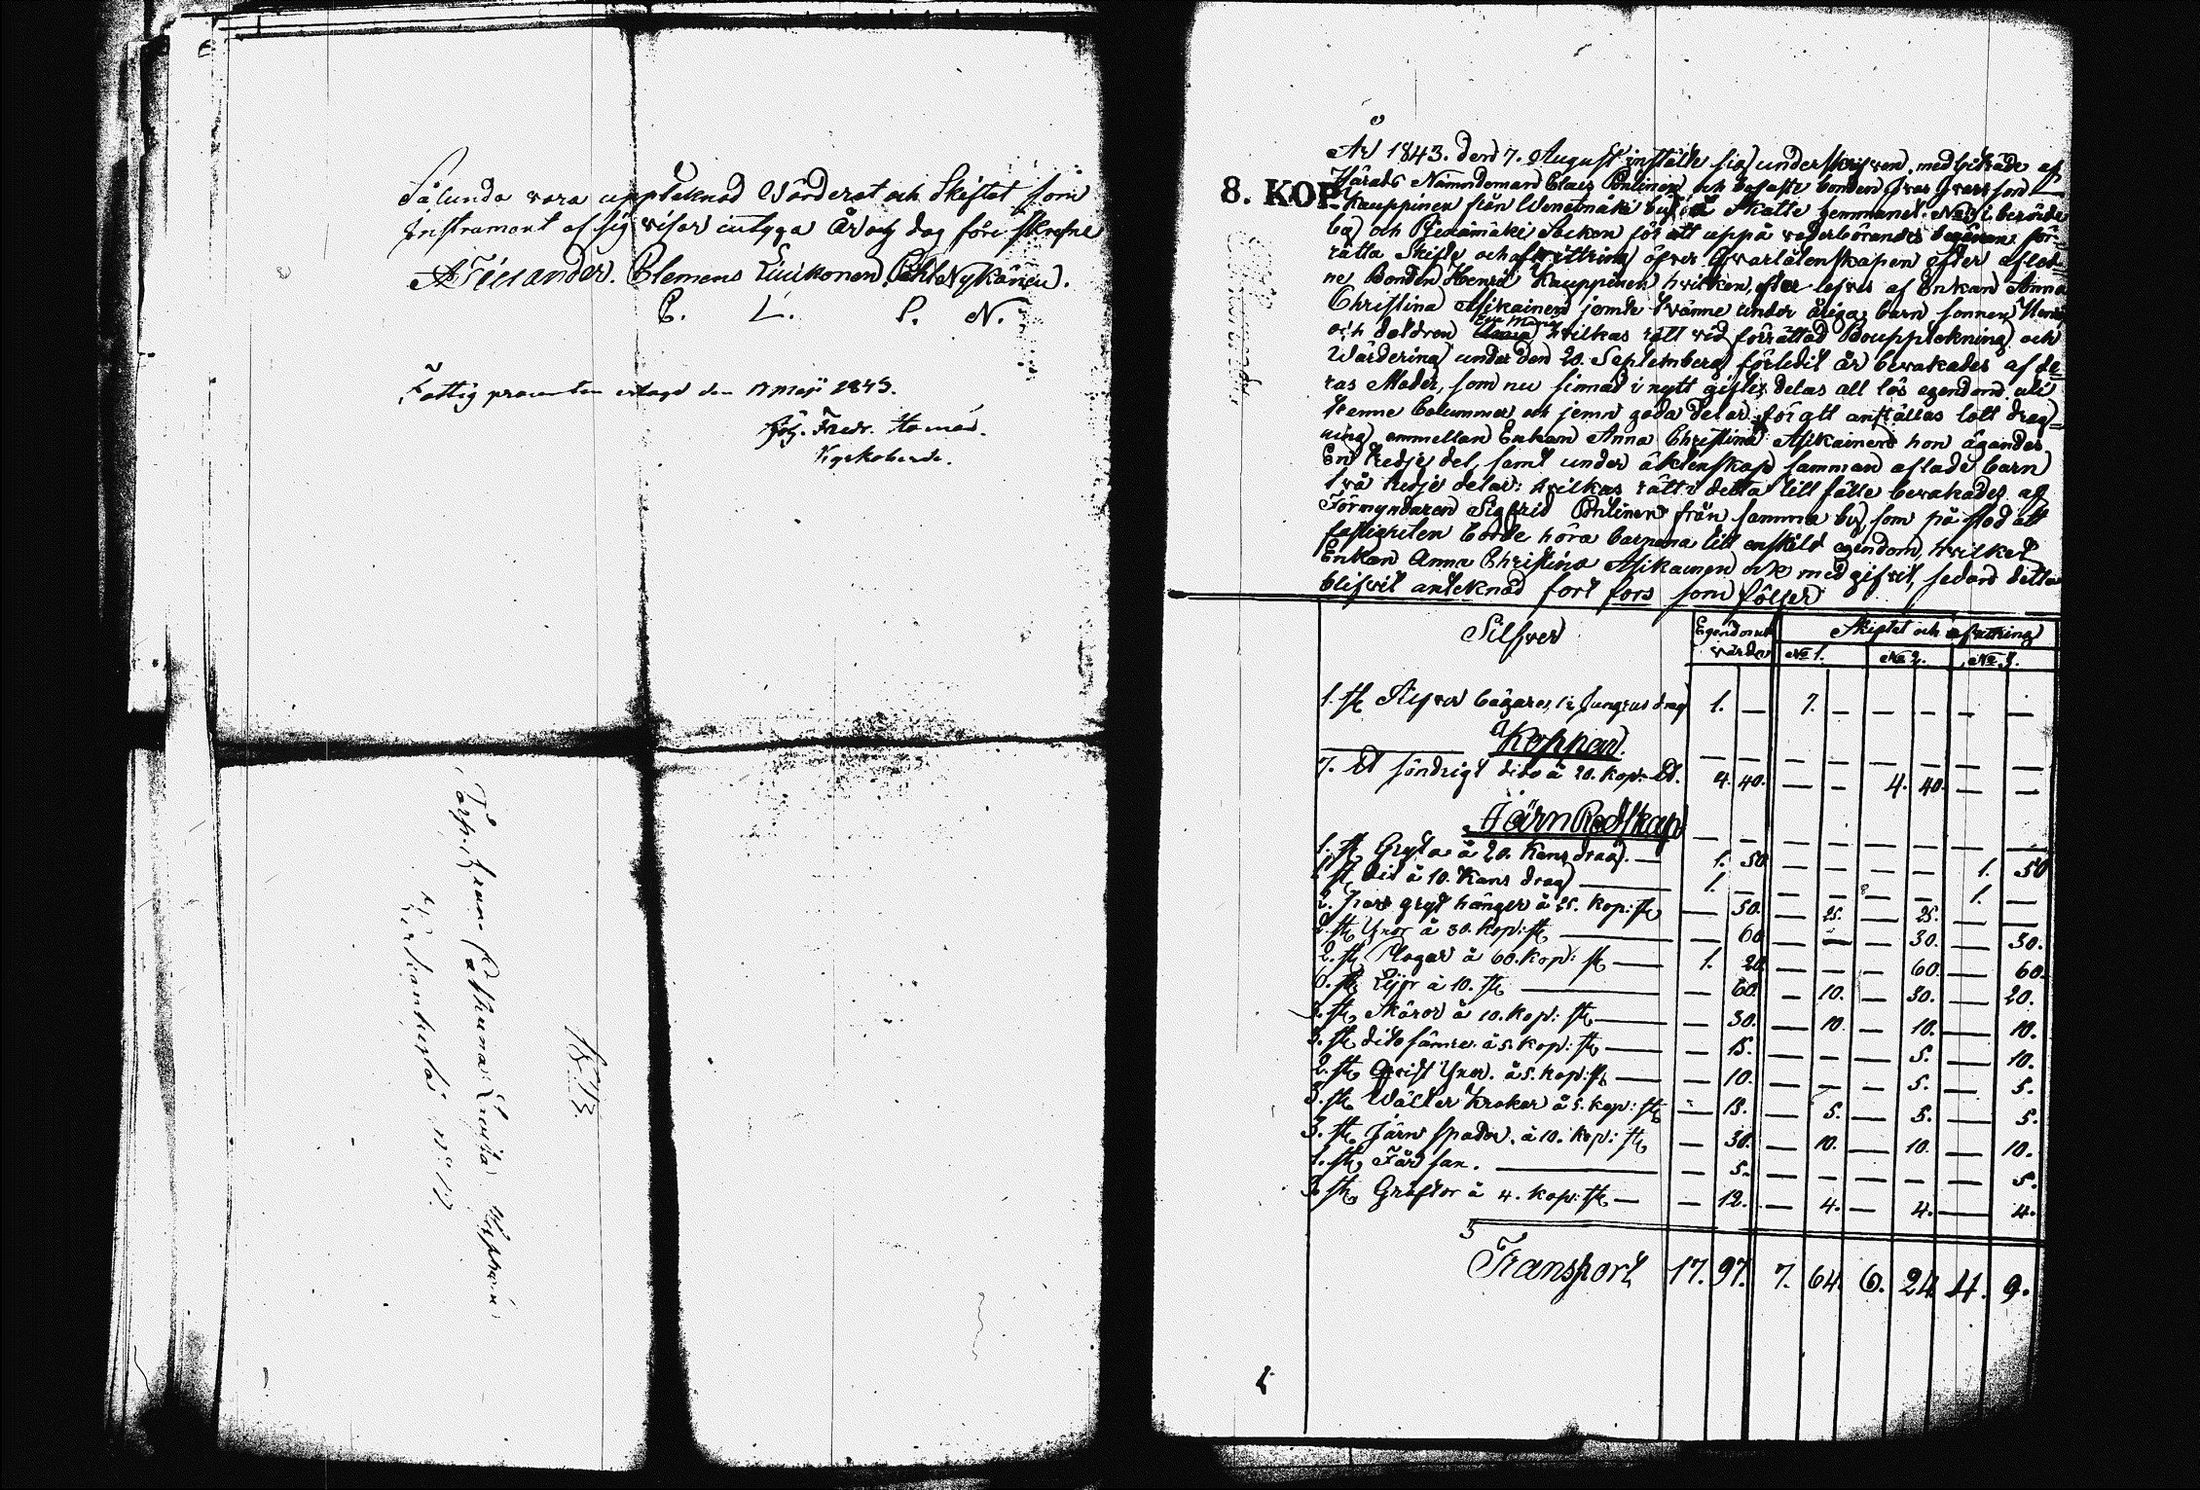 Sålunda vara uppteknad Värderat och Skiftat som
Instrumant af sig visar intyga År och dag föreskrefne
Clemens Liukonen. Pehr Nykänen.
C. L. P. N.
Fattig procenten erlagd den 17 Maji 1843.
Joh. Fredr.
1843
År 1843. den 7. August instälte sig underskrifven, med biträde af
Härads Nämndeman Claes Pöntinen och besatte bonden Ivar Ivarsson
8. KOP.
Kauppinen från Wenetmäki by å Skatte hemmanet No 1 berörde
by och Pieksämäki Socken för att uppå vederbörandes begäran för-
rätta Skifte och afvittring öfver qvarlåtenskapen efter afled-
ne Bonden Henric Kauppinen hvilken efter lefves af Enkan Anna
Christina Asikainen jemte tvänne under åriga barn sonnen Henric
och dottren Eva Maria hvilkas rätt vid förrättad Bouppteckning och
Wärdering under den 20. September förledit år bevakades af de-
ras Moder, som nu sinnad i nytt gifte, delas all lös egendom uti
trenne Columner och jemn goda delar för att anställas lott drag-
ning emmellan Enkan Anna Christina Asikainen hon ägandes
En tredje del, samt under äktenskap samman aflade barn
två tredje delar: hvilkas rätt i detta till fälle bevakades af
Förmyndaren Sigfrid Pöntinen från samma by, som på stod att
fastigheten borde höra barnena till enskild egendom, hvilket
Enkan Anna Christina Asikainen ock med gifvit, sedan detta
blifvit anteknad fort fors som följer
Silfver
Egendomens värde
Skiftet och afvittring
No 1. No 2. No 3.
1. st. Silfver bägare, 1/2 Jungfrus drag 1. — 7. — — — — —
Koppar.
7. lb söndrigt dito à 20. kop. lb. 4. 40. — — 4. 40. — —
Järn Redskap
1. st. Gryta à 20. Kans drag. — 1. 50 — — — — 1. 50
1. st. dit à 10. Kans drag — 1. — — — — — 1. —
2. par gryt hänger à 25. kop: st. — 50. — 25. — 25.
2. st. Yxor à 30. kop: st. — 60 — — — 30. — 30.
2. st. Plogar à 60. kop: st. — 1. 20 — — — 60. — 60.
6. st. Lijor à 10. st. — 60 — 10. — 30. — 20.
3. st. Skäror à 10. kop: st. — 30. — 10. — 10. — 10.
3. st. dito sämre à 5. kop: st. — 15. — — — 5. — 10.
2. st. Yxor. à 5. kop: st. — 10. — — — 5. — 5.
3. st. Krokar à 5. kop: st. — 15. — 5. — 5. — 5.
3. st. Järn spador. à 10. kop: st. — 30. — 10. — 10. — 10.
1. st. Får sax. — 5. — — — — — 5.
3. st. Gräftor à 4. kop: st. — 12. — 4. — 4. — 4.
Transport 17. 97. 7. 64. 6. 24 4. 9.